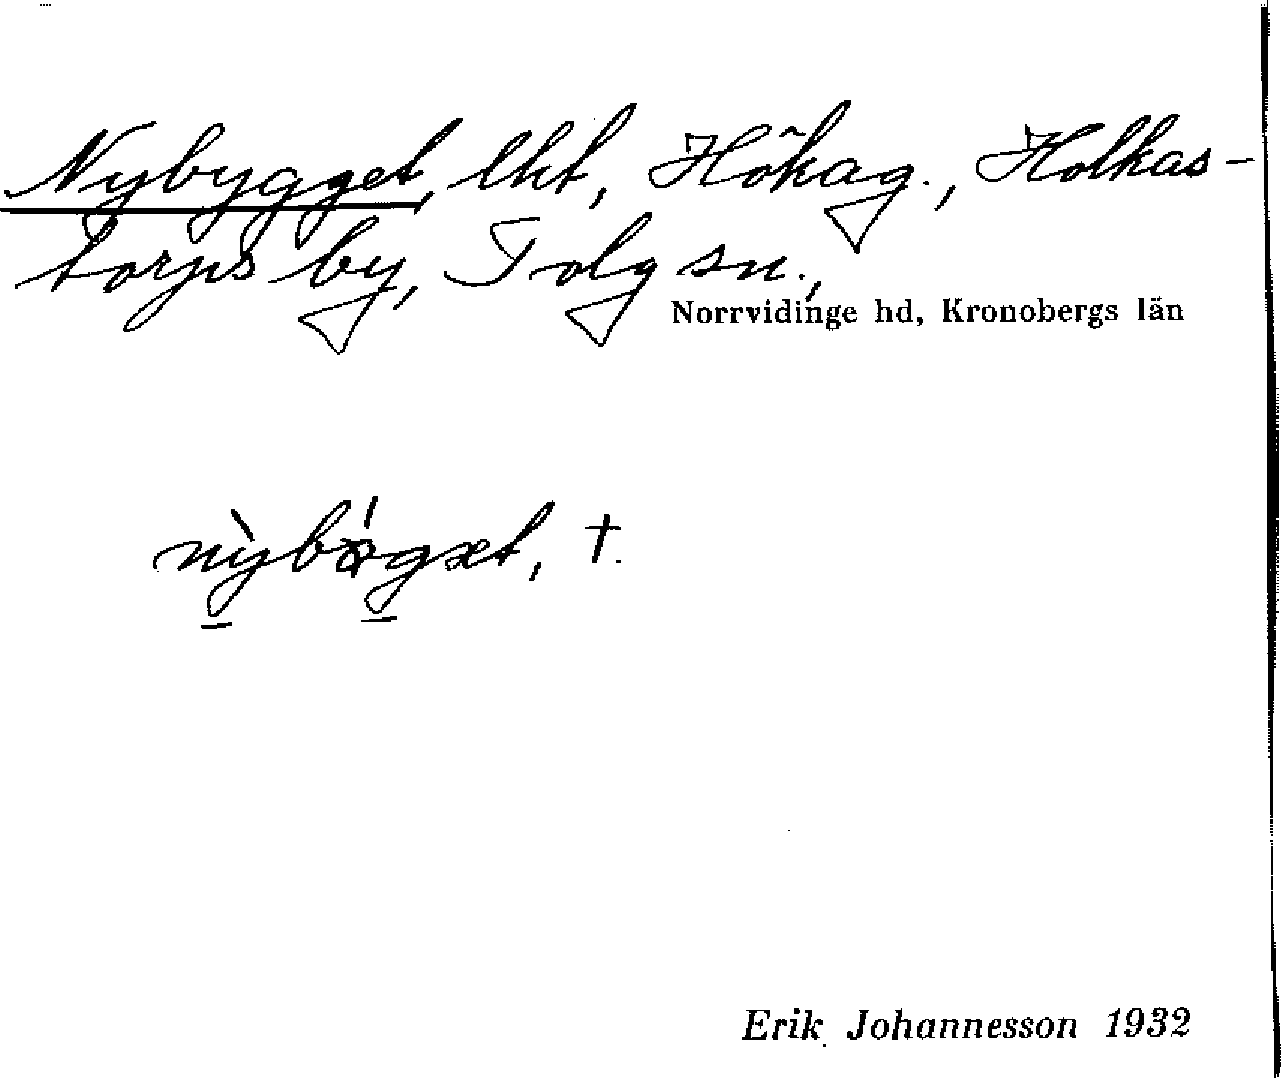 Nybygget, lht, Hökag., Holkas-
torps by, Tolg sn.,
Norrvidinge hd, Kronobergs län
†.
Erik Johannesson 1932